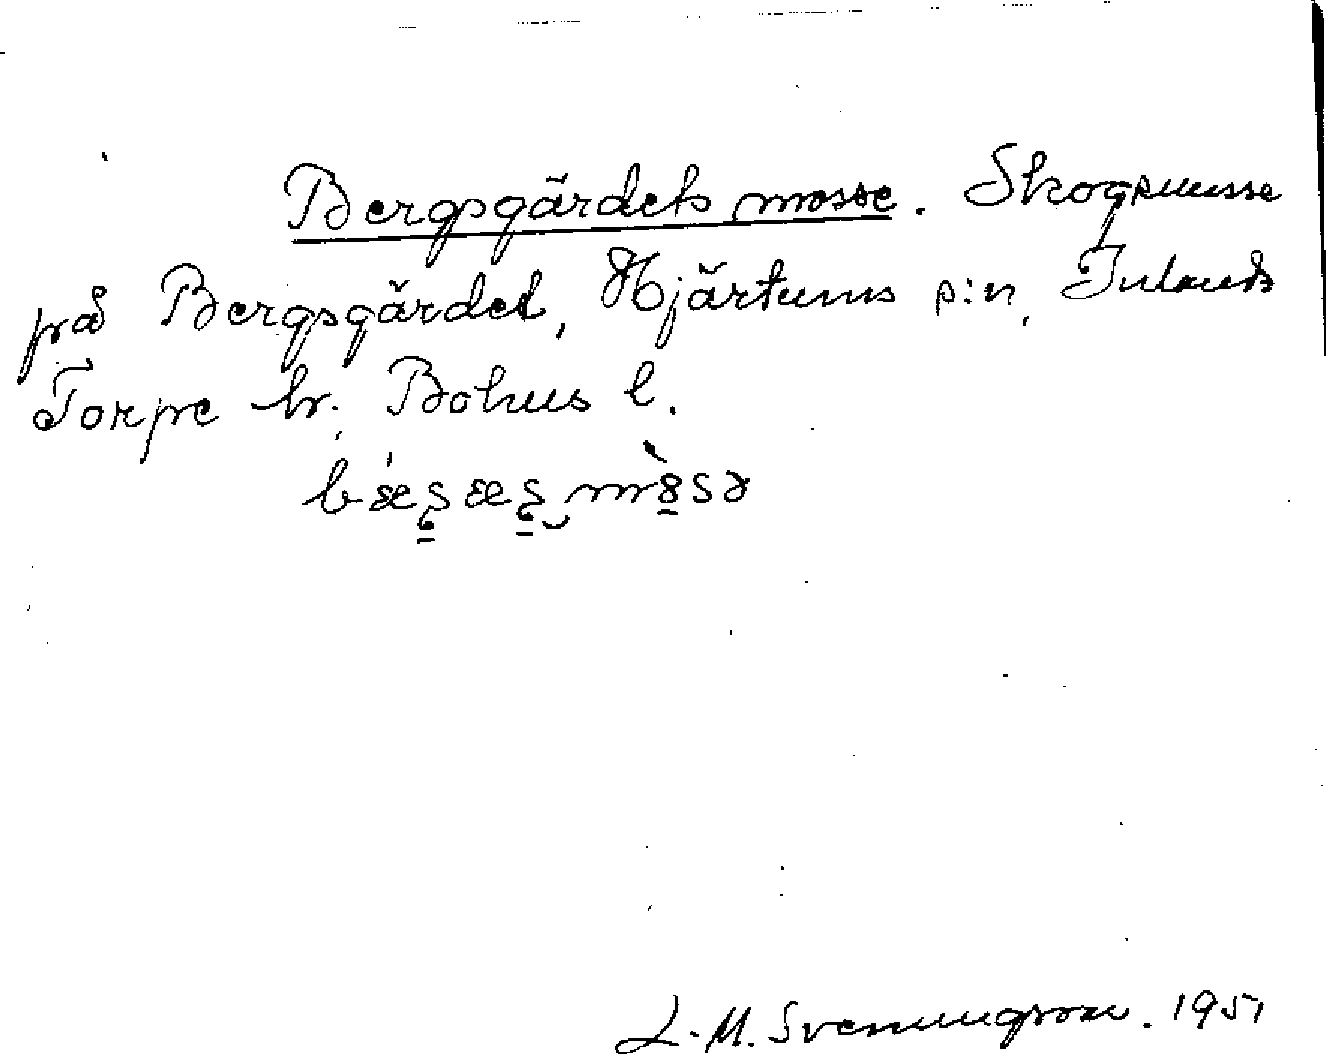 Bergsgärdets mosse. Skogsmosse
på Bergsgärdet, Hjärtums s:n, Inlands
Torpe hr. Bohus l.
L. M. Svenungsson. 1951